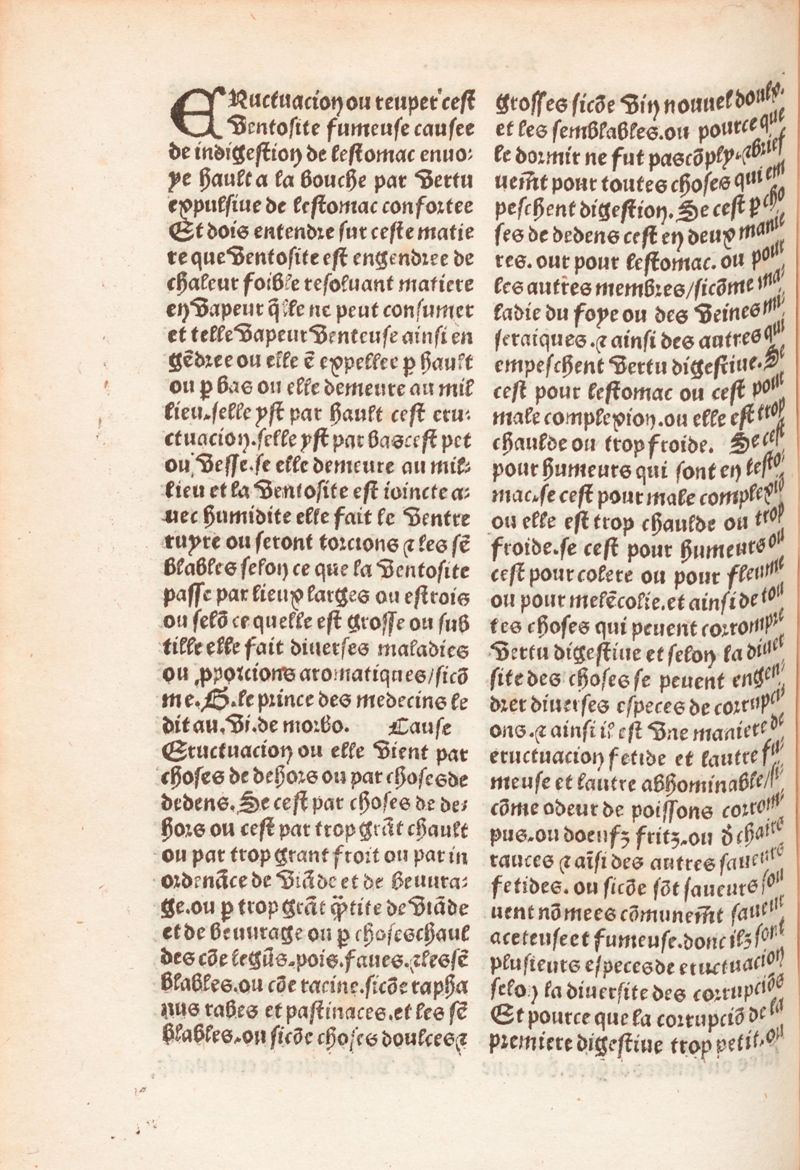 ERuctuacion ou reuper cest
Ventosite fumeuse causee
de indigestion de lestomac enuo-
ye hault a la bouche par Vertu
expulsiue de lestomac confortee
Et dois entendre sur ceste matie
re que Ventosite est engendree de
chaleur foible resoluant matiere
en Vapeur q̃lle ne peut consumer
et telle Vapeur Venteuse ainsi en
gẽdree ou elle ẽ expellee ꝑ hault
ou ꝑ bas ou elle demeure au mil
lieu.selle yst par hault cest eru-
ctuacion.selle yst par bas cest pet
ou Vesse.se elle demeure au mil-
lieu et la Ventosite est ioincte a-
uec humidite elle fait le Ventre
ruyre ou seront torcions ⁊ les sẽ
blables selon ce que la Ventosite
passe par lieux larges ou estrois
ou selõ ce quelle est grosse ou sub
tille elle fait diuerses maladies
ou ꝓporcions aromatiques/sicõ
me.G.le prince des medecins le
dit au.Vi.de morbo. Cause
Eructuacion ou elle Vient par
choses de dehors ou par choses de
dedens.Se cest par choses de de-
hors ou cest par trop grãt chault
ou par trop grant froit ou par in
ordenãce de Viãde et de beuura-
ge.ou ꝑ trop grãt q̃tite de Viãde
et de beuurage ou ꝑ choses chaul
des cõe legũs.pois.faues.⁊ les sẽ
blables.ou cõe racine.sicõe rapha
nus rabes et pastinaces.et les sẽ
blables.ou sicõe choses doulces ⁊
grosses sicõe Vin nouuel doulx.
et les semblables.ou pource que
le dormir ne fut pas cõply.⁊ brief
uemt̃ pour toutes choses qui em
peschent digestion.Se cest ꝑ cho
ses de dedens cest en deux manie
res.our pour lestomac.ou pour
les autres membres/sicõme ma-
ladie du foye ou des Veines mi-
seraiques.⁊ ainsi des autres qui
empeschent Vertu digestiue.Se
cest pour lestomac ou cest pour
male complexion.ou elle est trop
chaulde ou trop froide. Se cest
pour humeurs qui sont en lesto-
mac.se cest pour male complexiõ
ou elle est trop chaulde ou trop
froide.se cest pour humeurs ou
cest pour colere ou pour fleume
ou pour melẽcolie.et ainsi de tou
tes choses qui peuent corrompre
Vertu digestiue et selon la diuer
site des choses se peuent engen-
drer diuerses especes de corrupci-
ons.⁊ ainsi il est Vne maniere de
eructuacion fetide et lautre fu-
meuse et lautre abhominable/si-
cõme odeur de poissons corrom-
pus.ou doeufz fritz.ou ð chairs
rances ⁊ aĩsi des autres saueurs
fetides.ou sicõe sõt saueurs sou
uent nõmees cõmunemt̃ saueur
aceteuse et fumeuse.donc ilz sont
plusieurs especes de eructuacion
selon la diuersite des corrupciõs
Et pource que la corrupciõ de la
premiere digestiue trop petit.ou